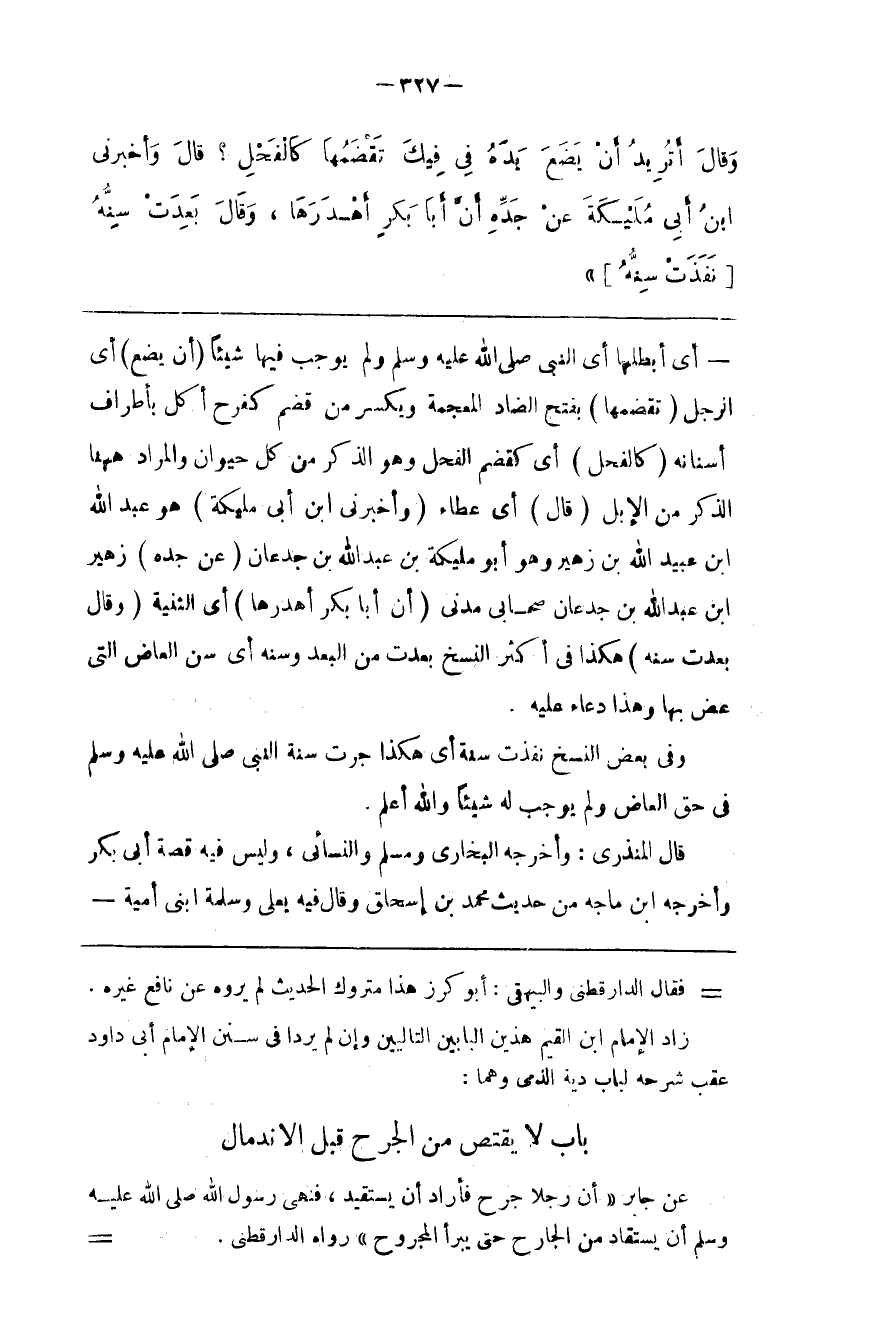 — ٣٢٧ —
وَقَالَ أَتُرِيدُ أَنْ يَضَعَ يَدَهُ فِي فِيكَ تَقْضَمُهَا كَالْفَحْلِ ؟ قالَ وَأخبرنى
ابنُ أَبِى مُلَيْكَةَ عنْ جَدِّهِ أنَّ أَبَا بَكرٍ أَهْدَرَهَا ، وَقَالَ بَعِدَتْ سِنُّهُ
[ نَفَذَتْ سِنُّهُ ] »
— أى أبطلها أى النبى صلى الله عليه وسلم ولم يوجب فيها شيئاً (أن يضع) أى
الرجل ( تقضمها ) بفتح الضاد المعجمة ويكسر من قضم كفرح أكل بأطراف
أسنانه ( كالفحل ) أى كقضم الفحل وهو الذكر من كل حيوان والمراد ههنا
الذكر من الإبل ( قال ) أى عطاء ( وأخبرنى ابن أبى مليكة ) هو عبد الله
ابن عبيد الله بن زهير وهو أبو مليكة بن عبدالله بن جدعان ( عن جده ) زهير
ابن عبدالله بن جدعان صحابى مدنى ( أن أبا بكر أهدرها ) أى الثنية ( وقال
بعدت سنه ) هكذا فى أكثر النسخ بعدت من البعد وسنه أى سن العاض التى
عض بها وهذا دعاء عليه .
وفى بعض النسخ نفذت سنة أى هكذا جرت سنة النبى صلى الله عليه وسلم
فى حق العاض ولم يوجب له شيئاً والله أعلم .
قال المنذرى : وأخرجه البخارى ومسلم والنسائى ، وليس فيه قصة أبى بكر
وأخرجه ابن ماجه من حديث محمد بن إسحاق وقال فيه يعلى وسلمة ابنى أمية —
= فقال الدارقطنى والبيهقى : أبو كرز هذا متروك الحديث لم يروه عن نافع غيره .
زاد الإمام ابن القيم هذين البابين التاليين وإن لم يردا فى سنن الإمام أبى داود
عقب شرحه لباب دية الذمى وهما :
باب لا يقتص من الجرح قبل الاندمال
عن جابر « أن رجلا جرح فأراد أن يستقيد ، فنهى رسول الله صلى الله عليه
وسلم أن يستقاد من الجارح حتى يبرأ المجروح » رواه الدارقطنى . =